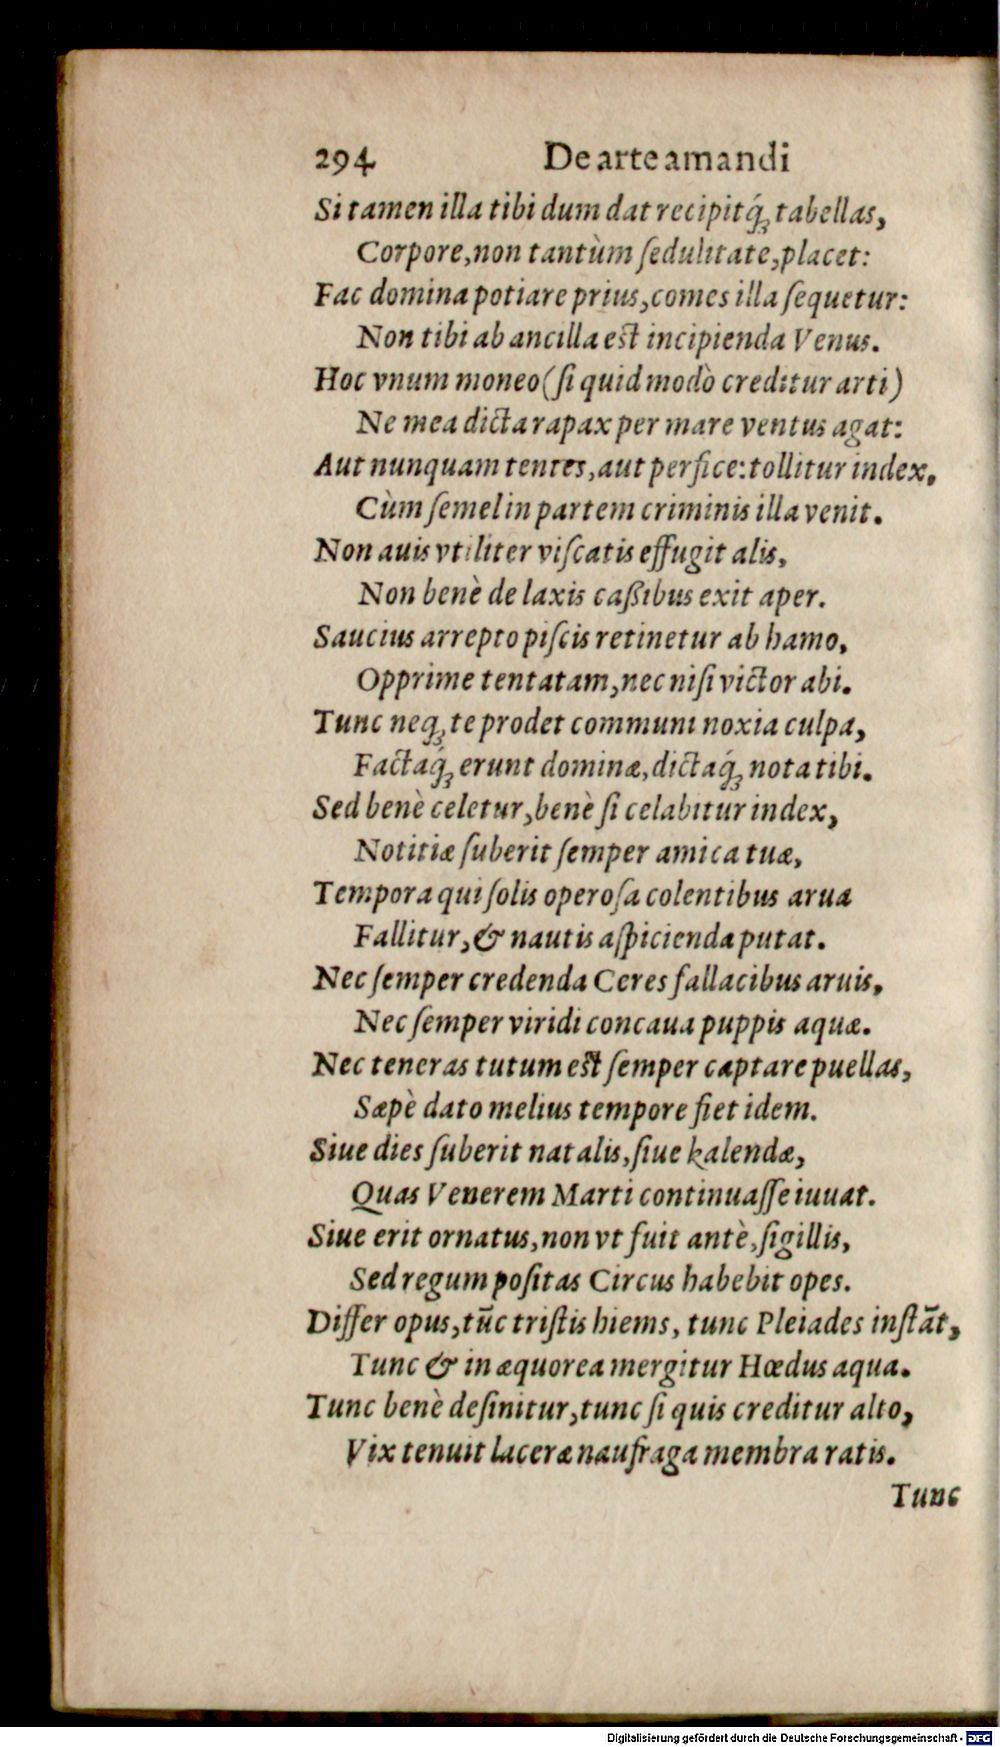 294 De arte amandi
Si tamen illa tibi dum dat recipitq́ꝫ tabellas,
Corpore, non tantùm ſedulitate, placet:
Fac domina potiare prius, comes illa ſequetur:
Non tibi ab ancilla est incipienda Venus.
Hoc vnum moneo (ſi quid modò creditur arti)
Ne mea dicta rapax per mare ventus agat:
Aut nunquam tentes, aut perfice: tollitur index,
Cùm ſemel in partem criminis illa venit.
Non auis vtiliter viſcatis effugit alis,
Non benè de laxis caßibus exit aper.
Saucius arrepto piſcis retinetur ab hamo,
Opprime tentatam, nec niſi victor abi.
Tunc neqꝫ te prodet communi noxia culpa,
Factaq́ꝫ erunt dominæ, dictaq́ꝫ nota tibi.
Sed benè celetur, benè ſi celabitur index,
Notitiæ ſuberit ſemper amica tuæ,
Tempora qui ſolis operoſa colentibus arua
Fallitur, & nautis aſpicienda putat.
Nec ſemper credenda Ceres fallacibus aruis,
Nec ſemper viridi concaua puppis aquæ.
Nec teneras tutum est ſemper captare puellas,
Sæpè dato melius tempore fiet idem.
Siue dies ſuberit natalis, ſiue kalendæ,
Quas Venerem Marti continuaſſe iuuat.
Siue erit ornatus, non vt fuit antè, ſigillis,
Sed regum poſitas Circus habebit opes.
Differ opus, tūc triſtis hiems, tunc Pleiades inſtāt,
Tunc & in æquorea mergitur Hœdus aqua.
Tunc benè deſinitur, tunc ſi quis creditur alto,
Vix tenuit laceræ naufraga membra ratis.
Tunc
Digitalisierung gefördert durch die Deutsche Forschungsgemeinschaft - DFG